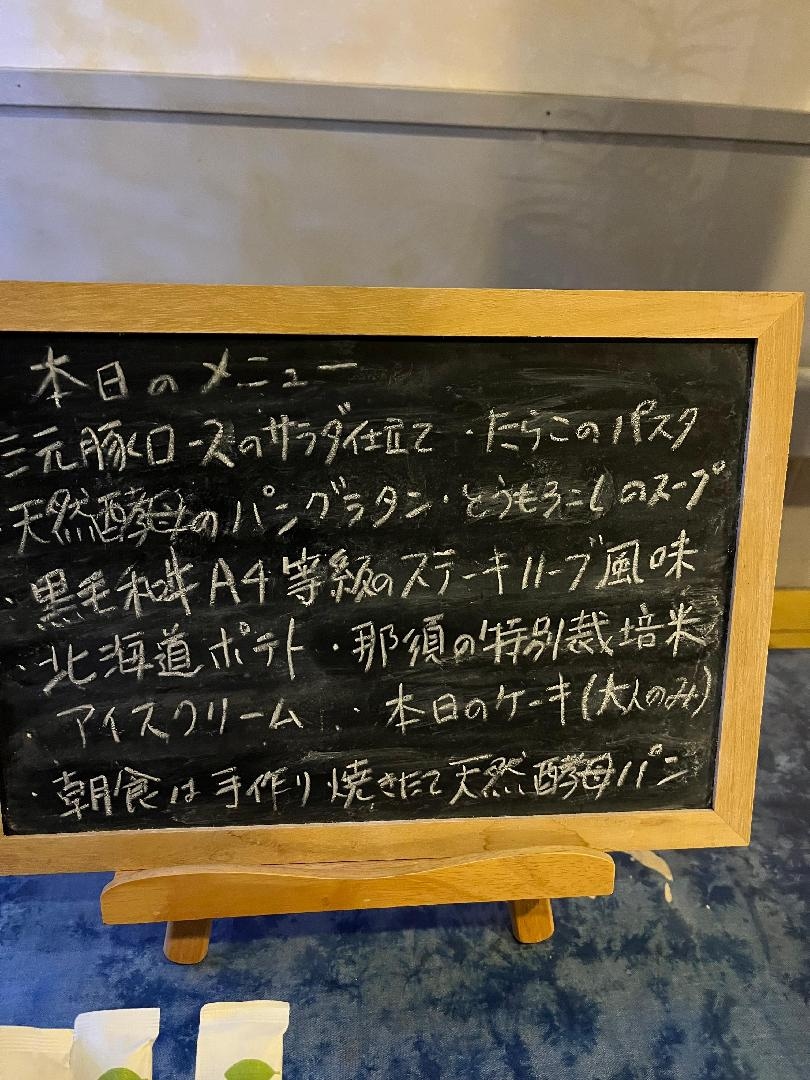 本日のメニュー
三元豚ロースのサラダ仕立て ・たらこのパスタ
・天然酵母のパングラタン・とうもろこしのスープ
・黒毛和牛A4等級のステーキハーブ風味
・北海道ポテト・那須の特別栽培米
・アイスクリーム ・本日のケーキ(大人のみ)
・朝食は手作り焼きたて天然酵母パン